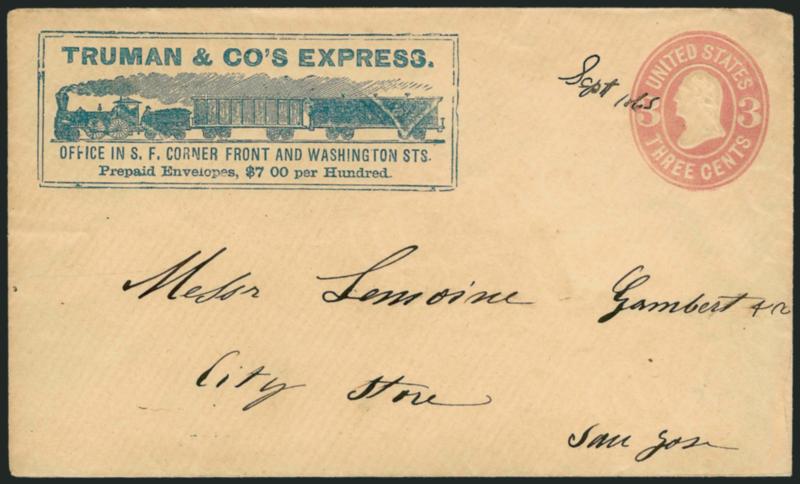 TRUMAN & CO'S EXPRESS.
OFFICE IN S. F. CORNER FRONT AND WASHINGTON STS.
Prepaid Envelopes, $7 00 per Hundred.
Sept
UNITED STATES
3 3
THREE CENTS
Messr Lemoine Gambert & Co
City Store
San Jose